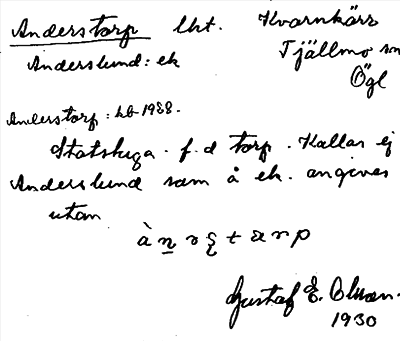 Anderstorp lht. Kvarnkärr
Anderslund: ek Tjällmo sn
Ögl
Anderstorp: hb 1938.
Statstuga. f. d torp. Kallas ej
Anderslund som å ek. angives
utan
Gustaf E. Olsson.
1930